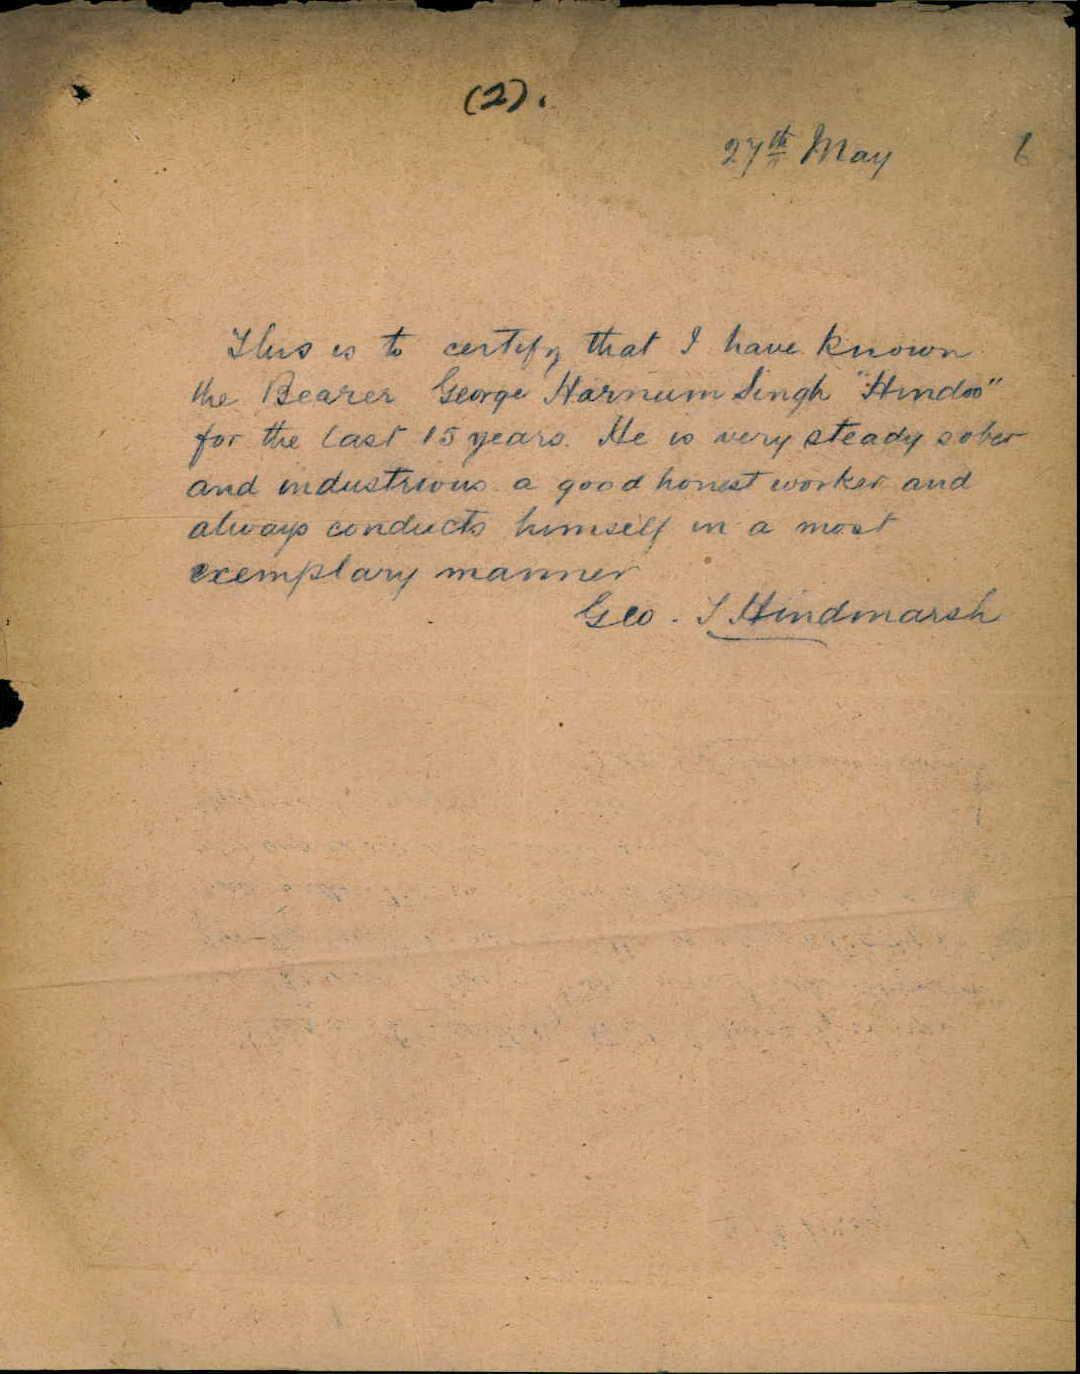 (2).
27th May 6
This is to certify that I have known
the Bearer George Harnum Singh "Hindoo"
for the last 15 years. He is very steady sober
and industrious a good honest worker and
always conducts himself in a most
exemplary manner
Geo. T Hindmarsh